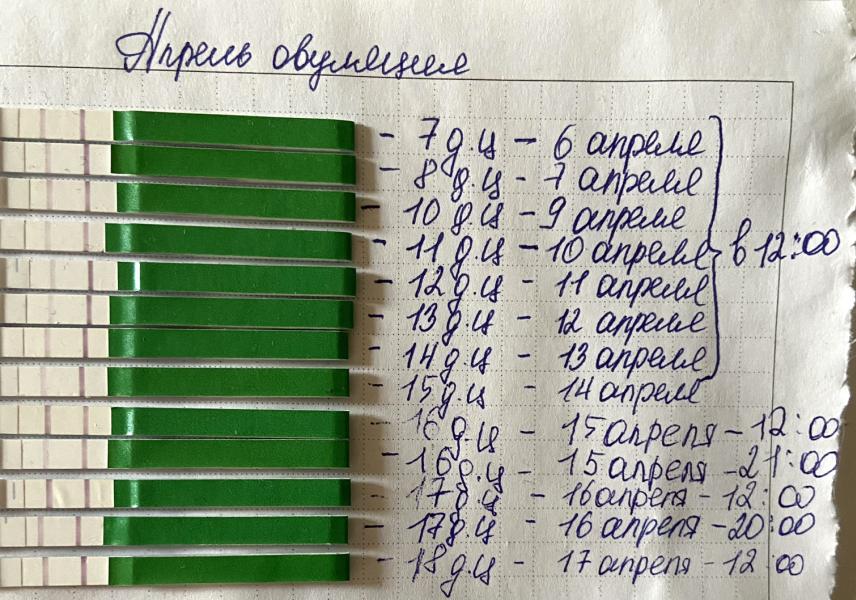 Апрель овуляция
- 7 д.ц - 6 апреля
- 8 д.ц - 7 апреля
- 10 д.ц - 9 апреля
- 11 д.ц - 10 апреля
- 12 д.ц - 11 апреля
- 13 д.ц - 12 апреля
- 14 д.ц - 13 апреля
в 12:00
- 15 д.ц - 14 апреля
- 16 д.ц - 15 апреля - 12:00
- 16 д.ц - 15 апреля - 21:00
- 17 д.ц - 16 апреля - 12:00
- 17 д.ц - 16 апреля - 20:00
- 18 д.ц - 17 апреля - 12:00